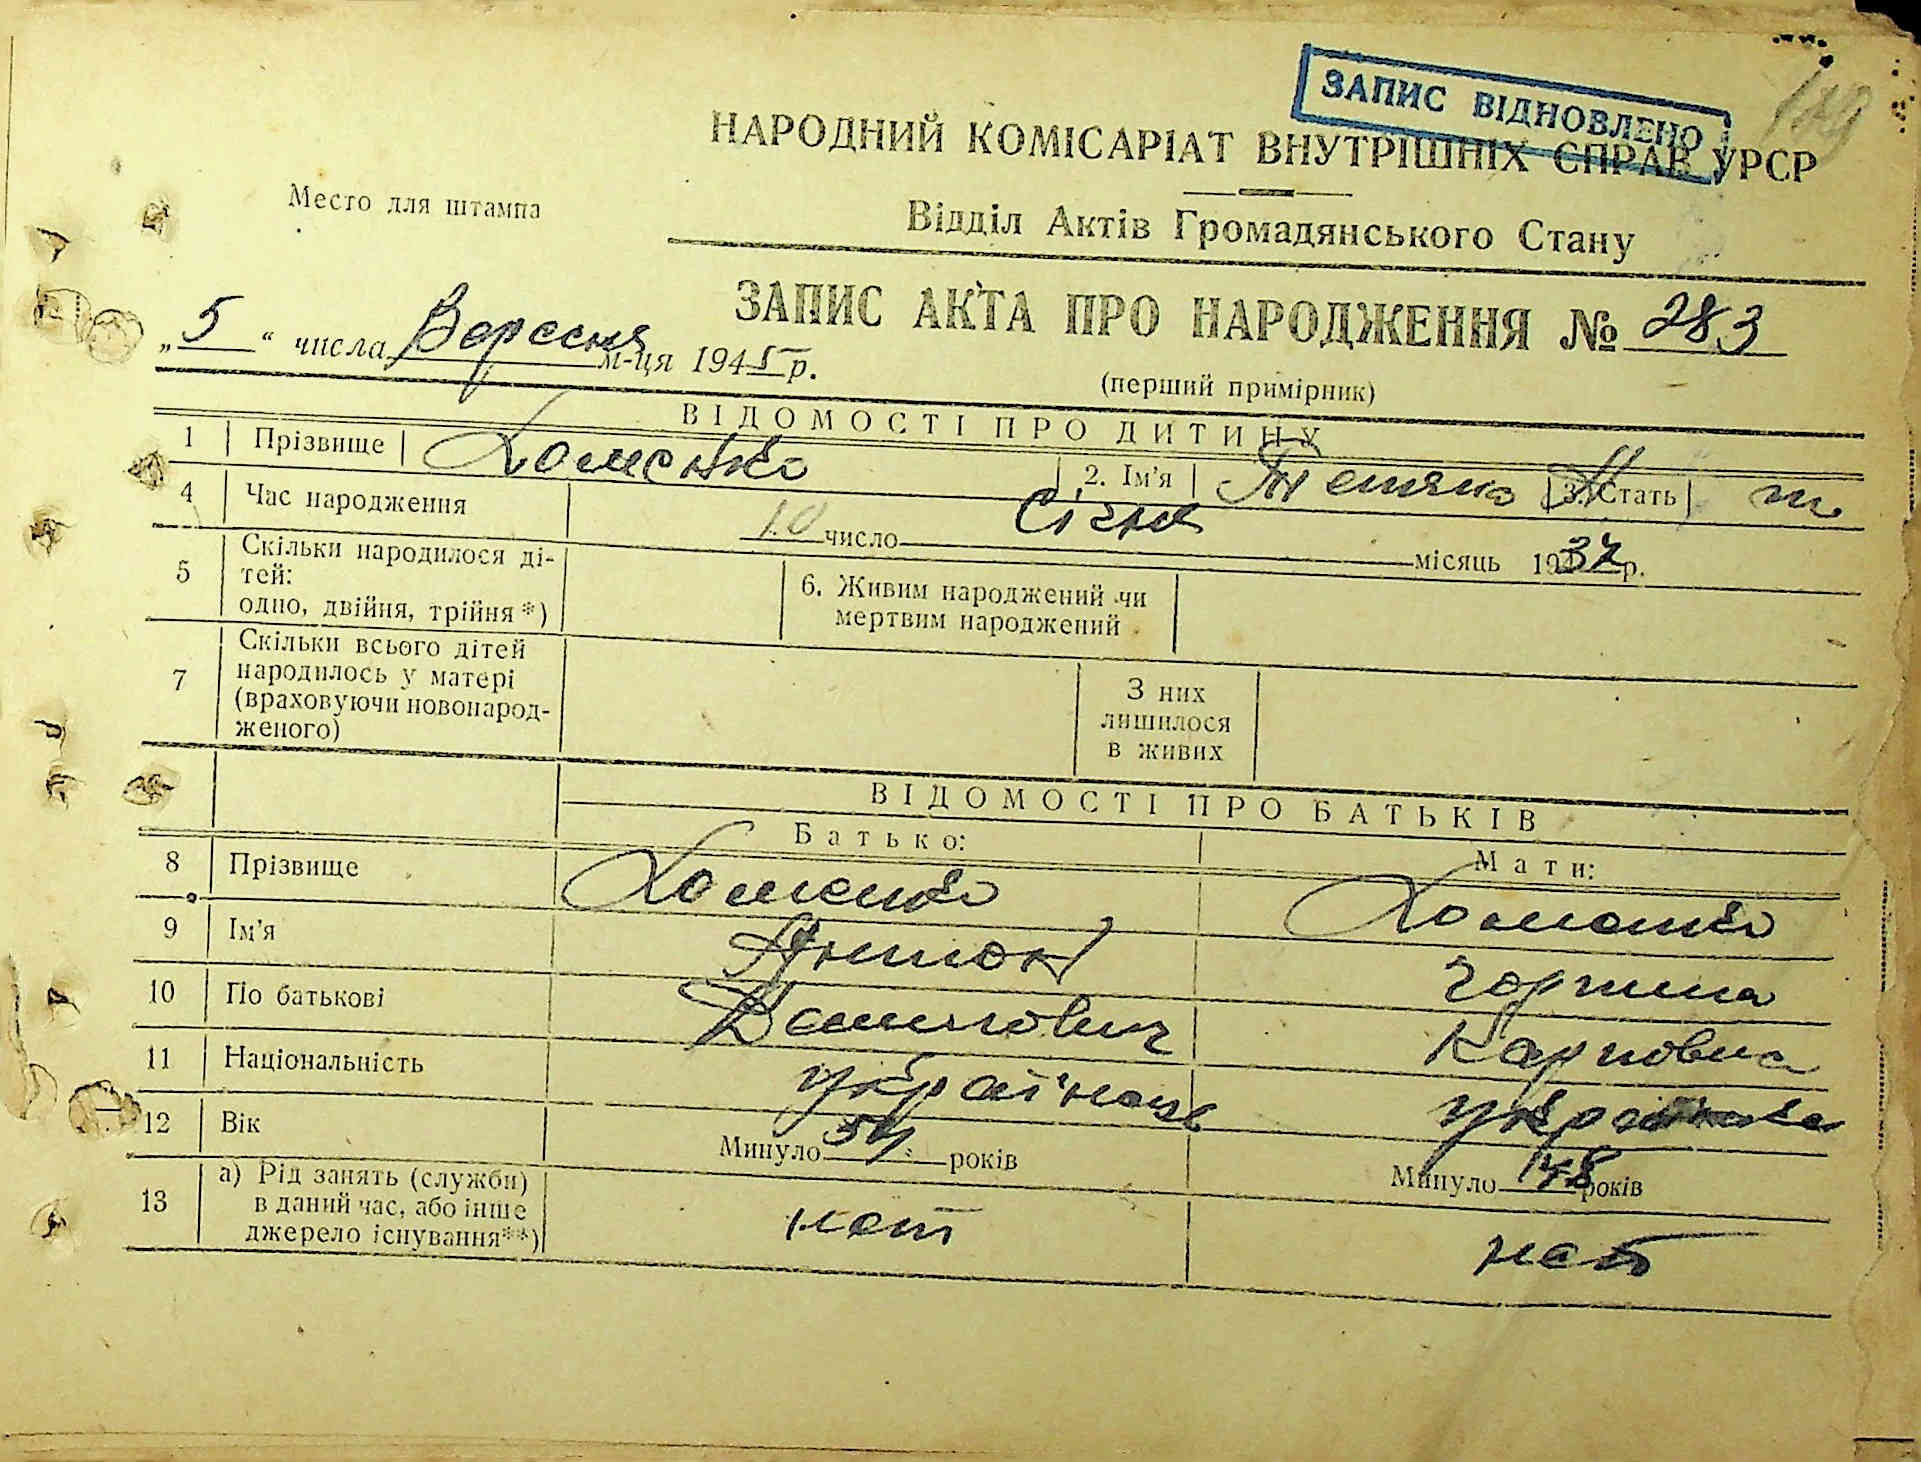 ЗАПИС ВІДНОВЛЕНО
НАРОДНИЙ КОМІСАРІАТ ВНУТРІШНІХ СПРАВ УРСР
Место для штампа
Відділ Актів Громадянського Стану
ЗАПИС АКТА ПРО НАРОДЖЕННЯ № 283
„5“ числа Вересня м-ця 1945 р.
(перший примірник)
ВІДОМОСТІ ПРО ДИТИНУ
1 Прізвище Хоменко 2. Ім'я Тетяна А 3. Стать ж
4 Час народження 10 число Січня місяць 1937 р.
5 Скільки народилося ді-
тей:
одно, двійня, трійня *)
6. Живим народжений чи
мертвим народжений
7 Скільки всього дітей
народилось у матері
(враховуючи новонарод-
женого)
З них
лишилося
в живих
ВІДОМОСТІ ПРО БАТЬКІВ
Батько: Мати:
8 Прізвище Хоменко Хоменко
9 Ім'я Антон Горпина
10 По батькові Данилович Карповна
11 Національність українець українка
12 Вік Минуло років Минуло 48 років
13 а) Рід занять (служби)
в даний час, або інше
джерело існування**)
нет нет